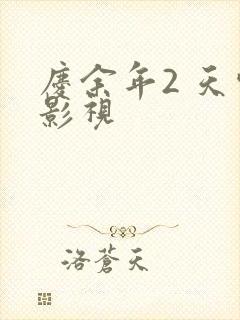 庆余年2 天
影视
洛蒼天